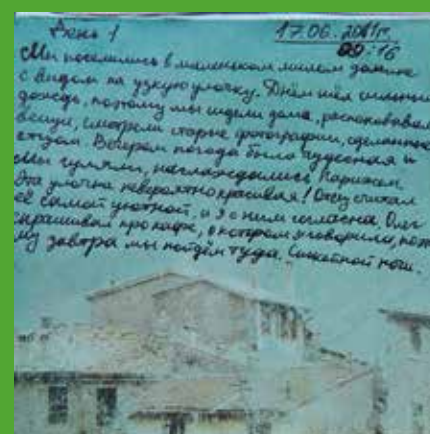 День 1 17.06.2011г.
00:16
Мы поселились в маленьком милом домике
с видом на узкую улочку. Днём шёл сильный
дождь, поэтому мы сидели дома, распаковывал
вещи, смотрели старые фотографии, сделанные
отцом. Вечером погода была чудесная и
мы гуляли, наслаждались Парижем.
Эта улочка невероятно красивая! Отец считал
её самой уютной, и я с ним согласна. Олег
спрашивал про кафе, о котором я говорила, поэ
му завтра мы пойдём туда. Спокойной ночи.